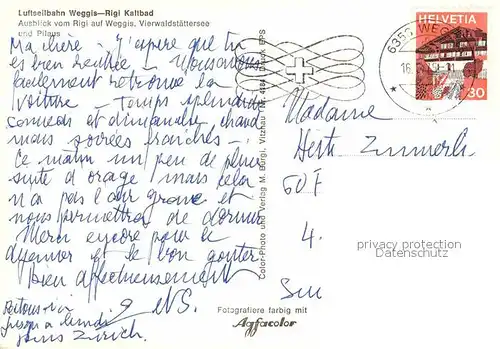 Luftseilbahn Weggis—Rigi Kaltbad
Ausblick vom Rigi auf Weggis, Vierwaldstättersee
und Pilatus
Ma chère j'espère que tu
es bien rentrée. Nous avons
facilement retrouvé la
voiture – Temps splendide
samedi et dimanche, chaud
mais soirées fraîches –
Ce matin un peu de pluie
suite d'orage mais cela
n'a pas l'air grave et
nous permettra de dormir
Merci encore pour le
déjeuner et le bon goûter
bien affectueusement
jusqu'à lundi
Zürich.
Color-Photo und Verlag M. Bürgi, Vitznau
6353 WEGGIS
16.
HELVETIA
30
Madame
Zimmerli
4.
privacy protection
Datenschutz
Fotografiere farbig mit
Agfacolor